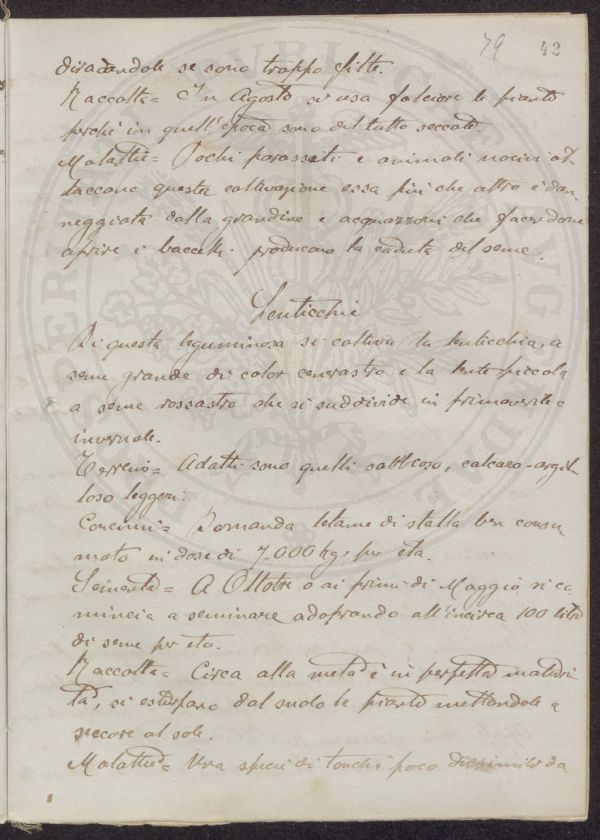 79 42
diradandole se sono troppo fitte.
Raccolta = In Agosto si usa falciare le piante
perchè in quell'epoca sono del tutto seccate.
Malattie = Pochi parassiti e animali nocivi at-
taccano questa coltivazione essa più che altro è dan-
neggiata dalla grandine e acquazzoni che facendone
aprire i baccelli producono la caduta del seme.
Lenticchie
Di questa leguminosa si coltiva la lenticchia, a
seme grande di color cenerastro e la lente piccola
a seme rossastro che si suddivide in primaverile e
invernale.
Terreno = Adatti sono quelli sabbioso, calcare-argil-
loso leggeri:
Concimi = Domanda letame di stalla ben consu-
mato in dose di 7.000 kg. per eta.
Sementa = A Ottobre o ai primi di Maggio si co
mincia a seminare adoprando all'incirca 100 litri
di seme per eta.
Raccolta = Circa alla metà è in perfetta maturi-
tà, si estirpano dal suolo le piante mettendole a
seccare al sole.
Malattie = Una specie di tonchi poco dissimile da